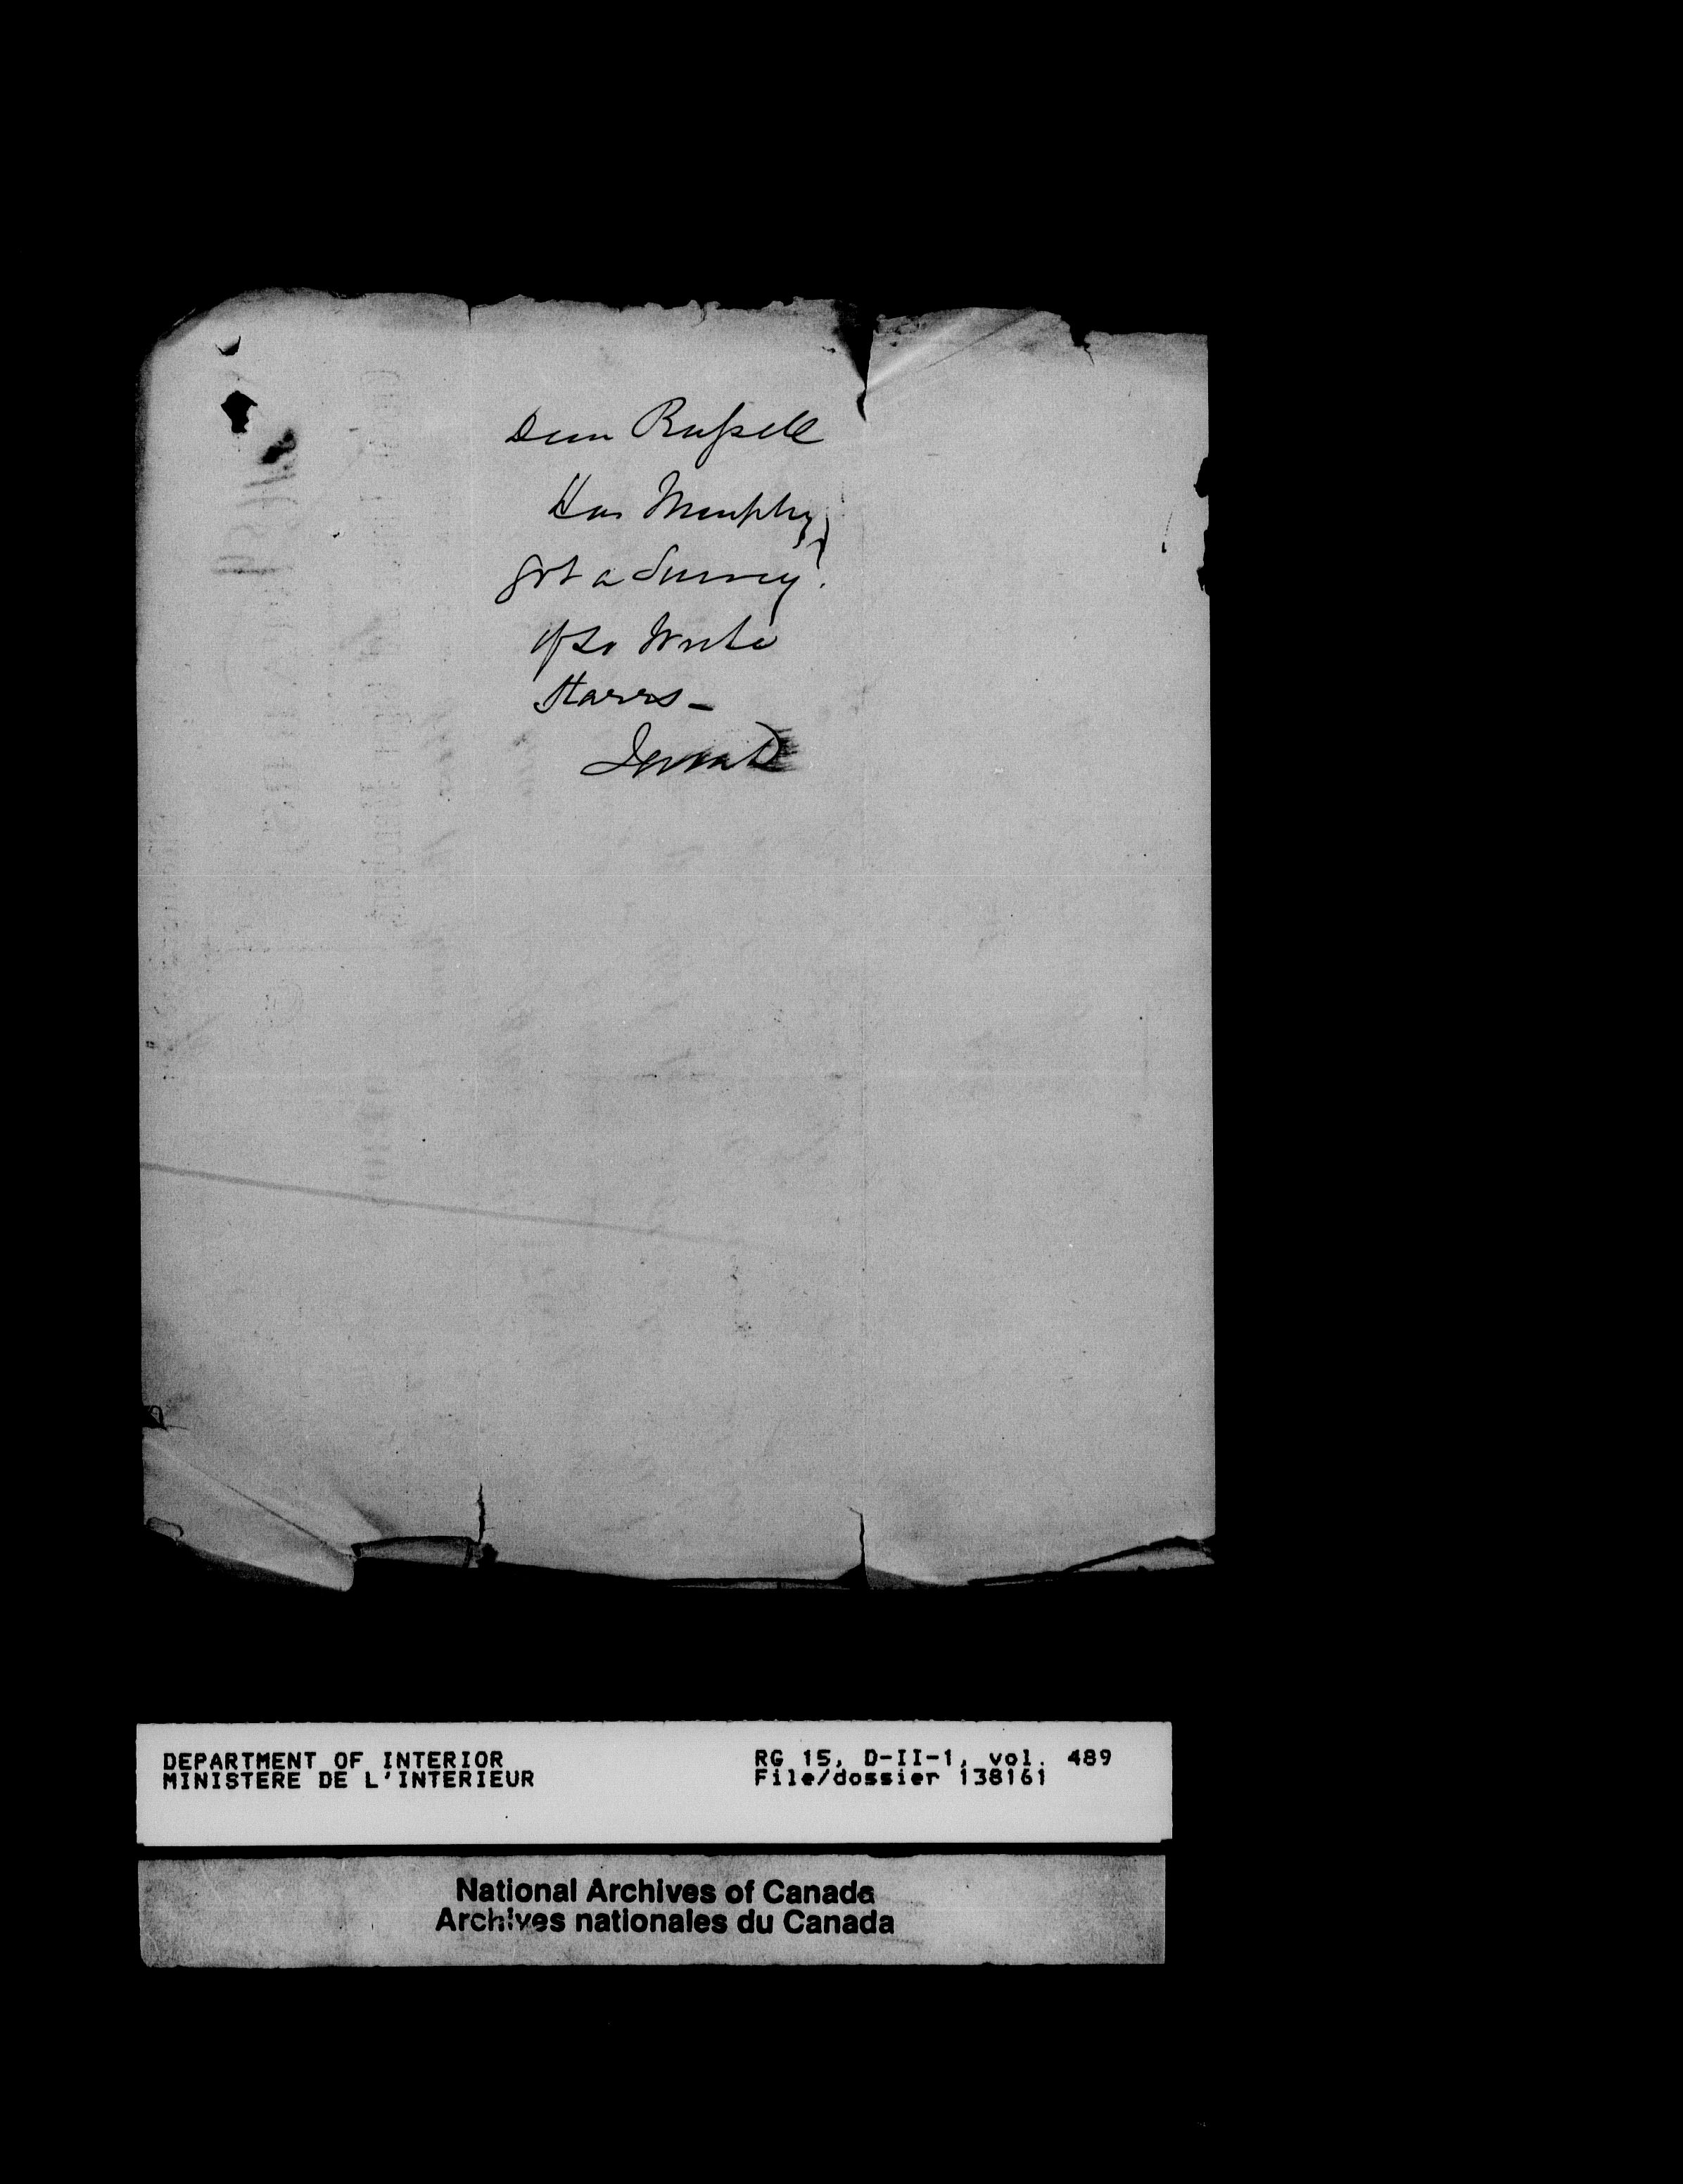 Dear Russell
Has Murphy
got a Survey?
if so Write
Starrs -
DEPARTMENT OF INTERIOR
MINISTERE DE L'INTERIEUR
RG 15, D-II-1, vol. 489
File/dossier 138161
National Archives of Canada
Archives nationales du Canada